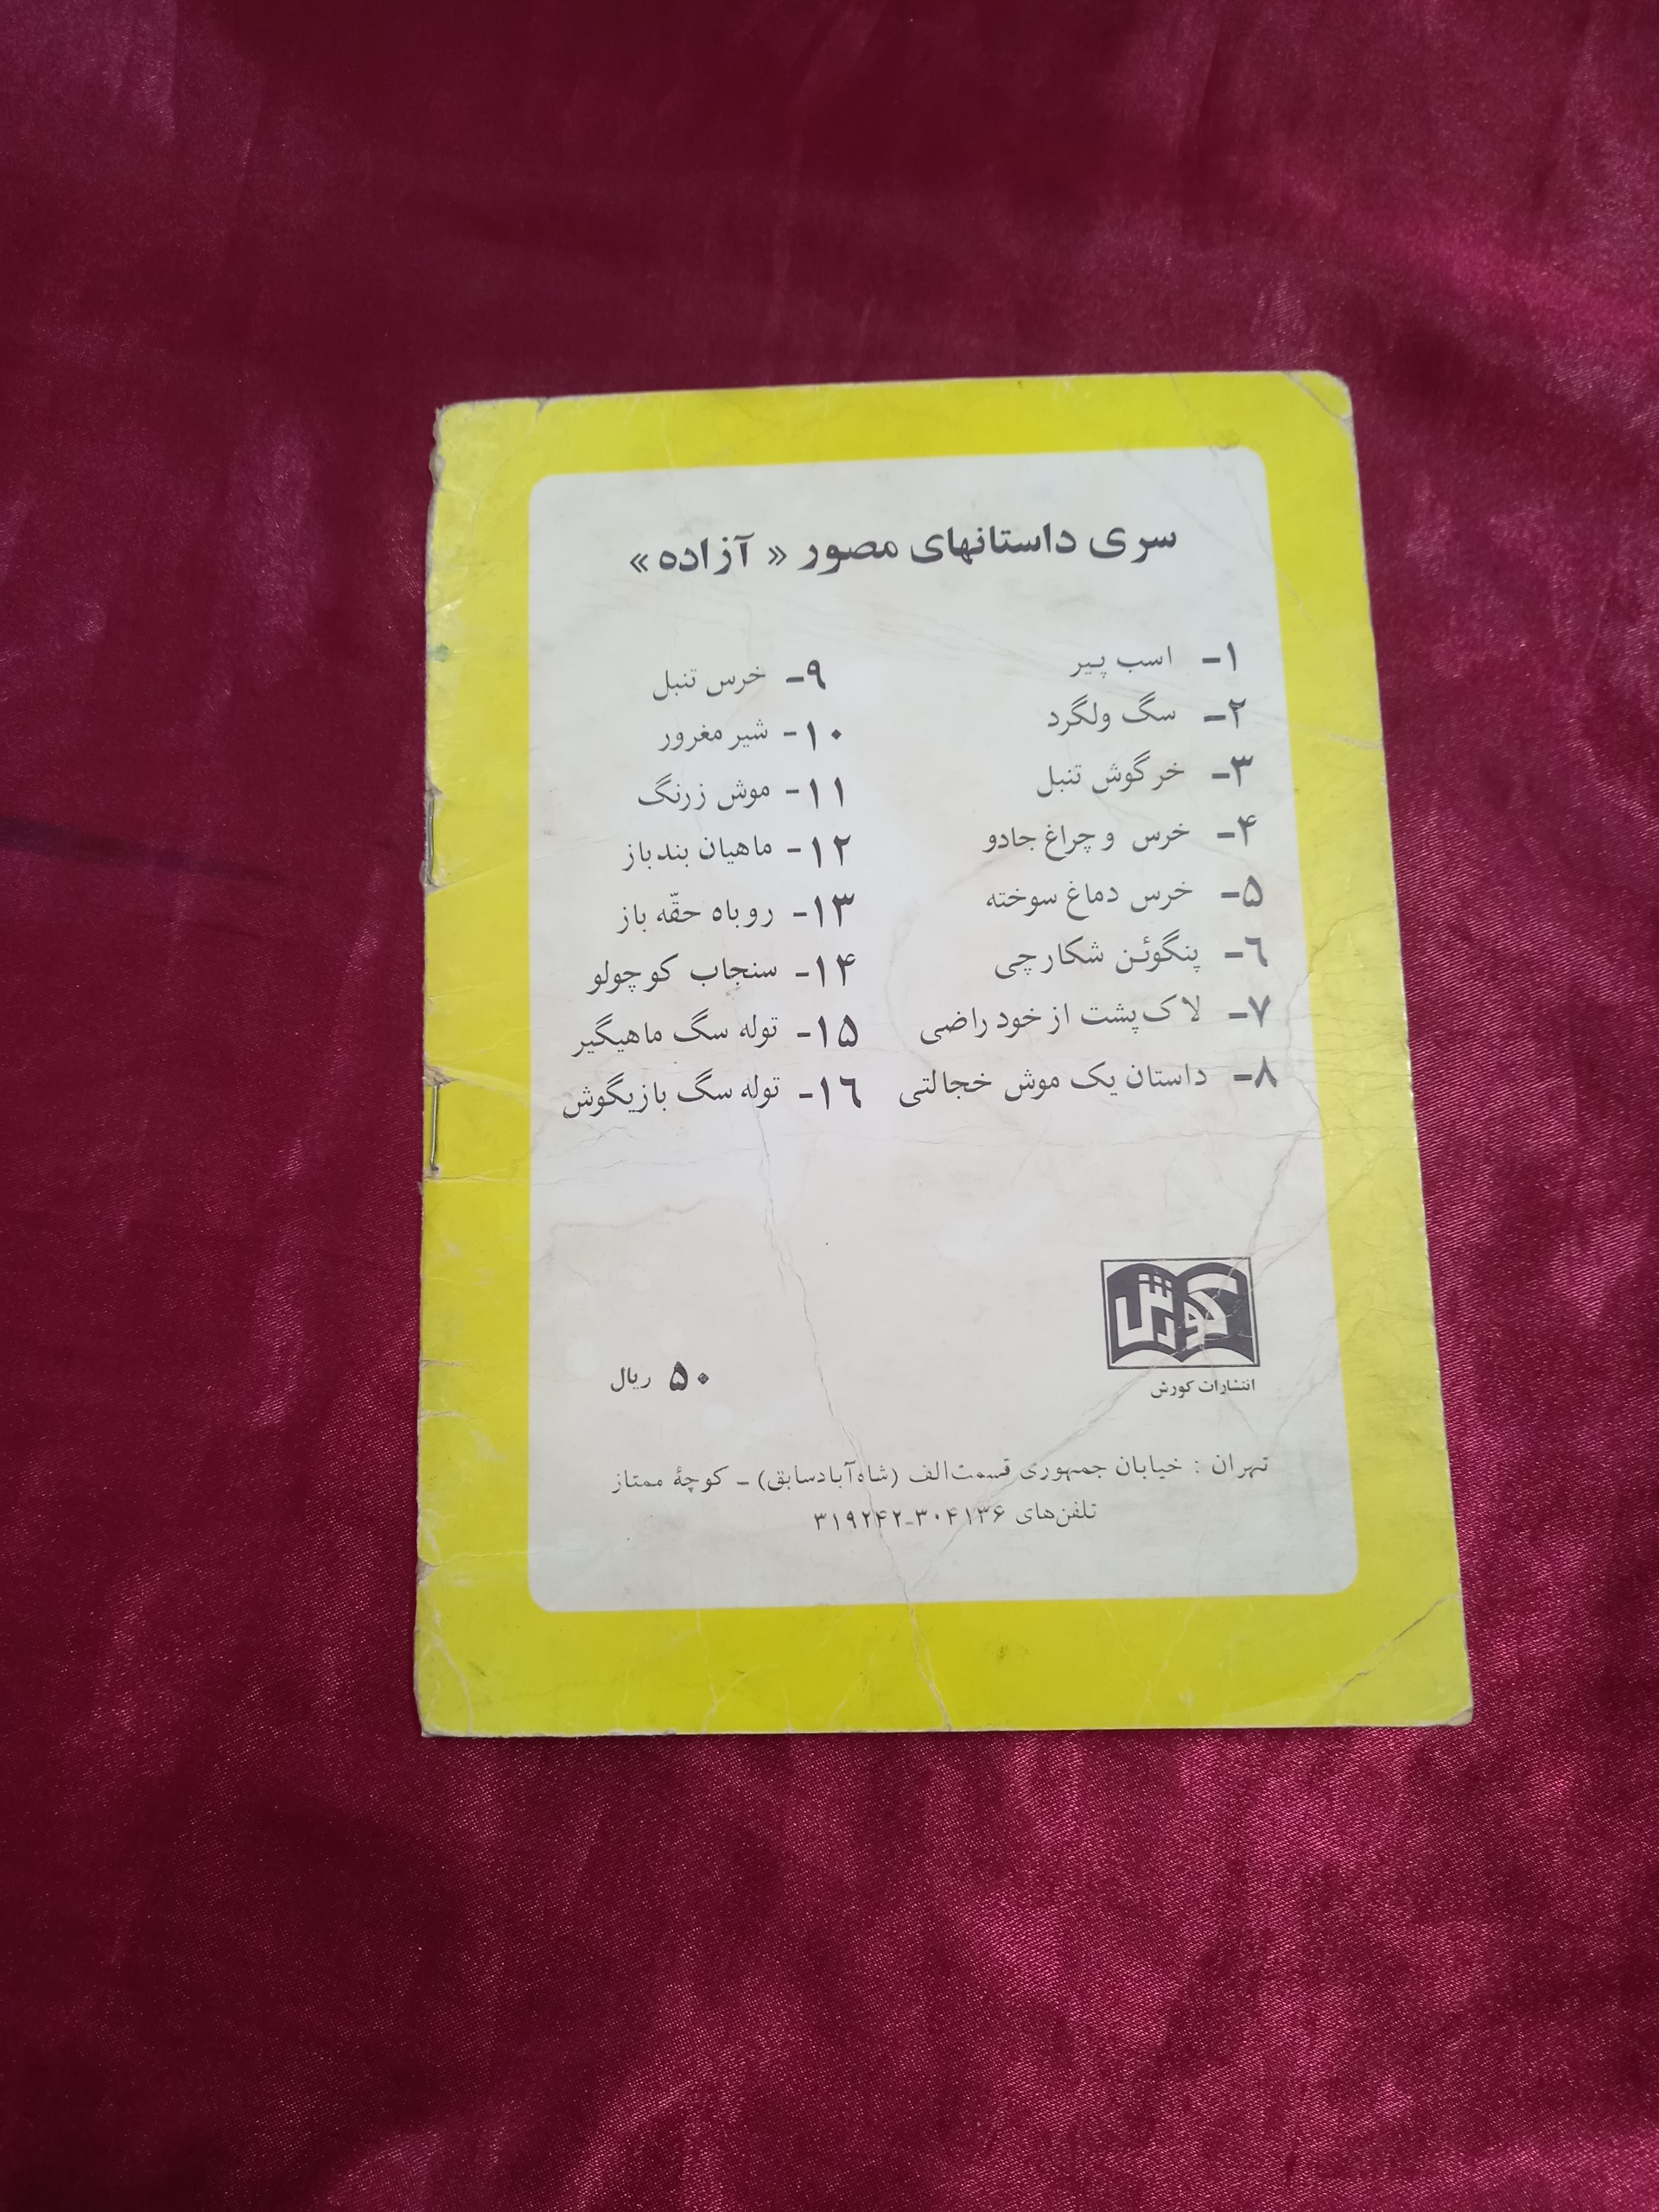 سری داستانهای مصور «آزاده»
۱- اسب پیر
۲- سگ ولگرد
۳- خرگوش تنبل
۴- خرس و چراغ جادو
۵- خرس دماغ سوخته
۶- پنگوئن شکارچی
۷- لاک‌پشت از خود راضی
۸- داستان یک موش خجالتی
۹- خرس تنبل
۱۰- شیر مغرور
۱۱- موش زرنگ
۱۲- ماهیان بندباز
۱۳- روباه حقّه باز
۱۴- سنجاب کوچولو
۱۵- توله سگ ماهیگیر
۱۶- توله سگ بازیگوش
کورش
انتشارات کورش
۵۰ ریال
تهران : خیابان جمهوری قسمت الف (شاه‌آباد سابق) - کوچهٔ ممتاز
تلفن‌های ۳۰۴۱۳۶-۳۱۹۲۴۲